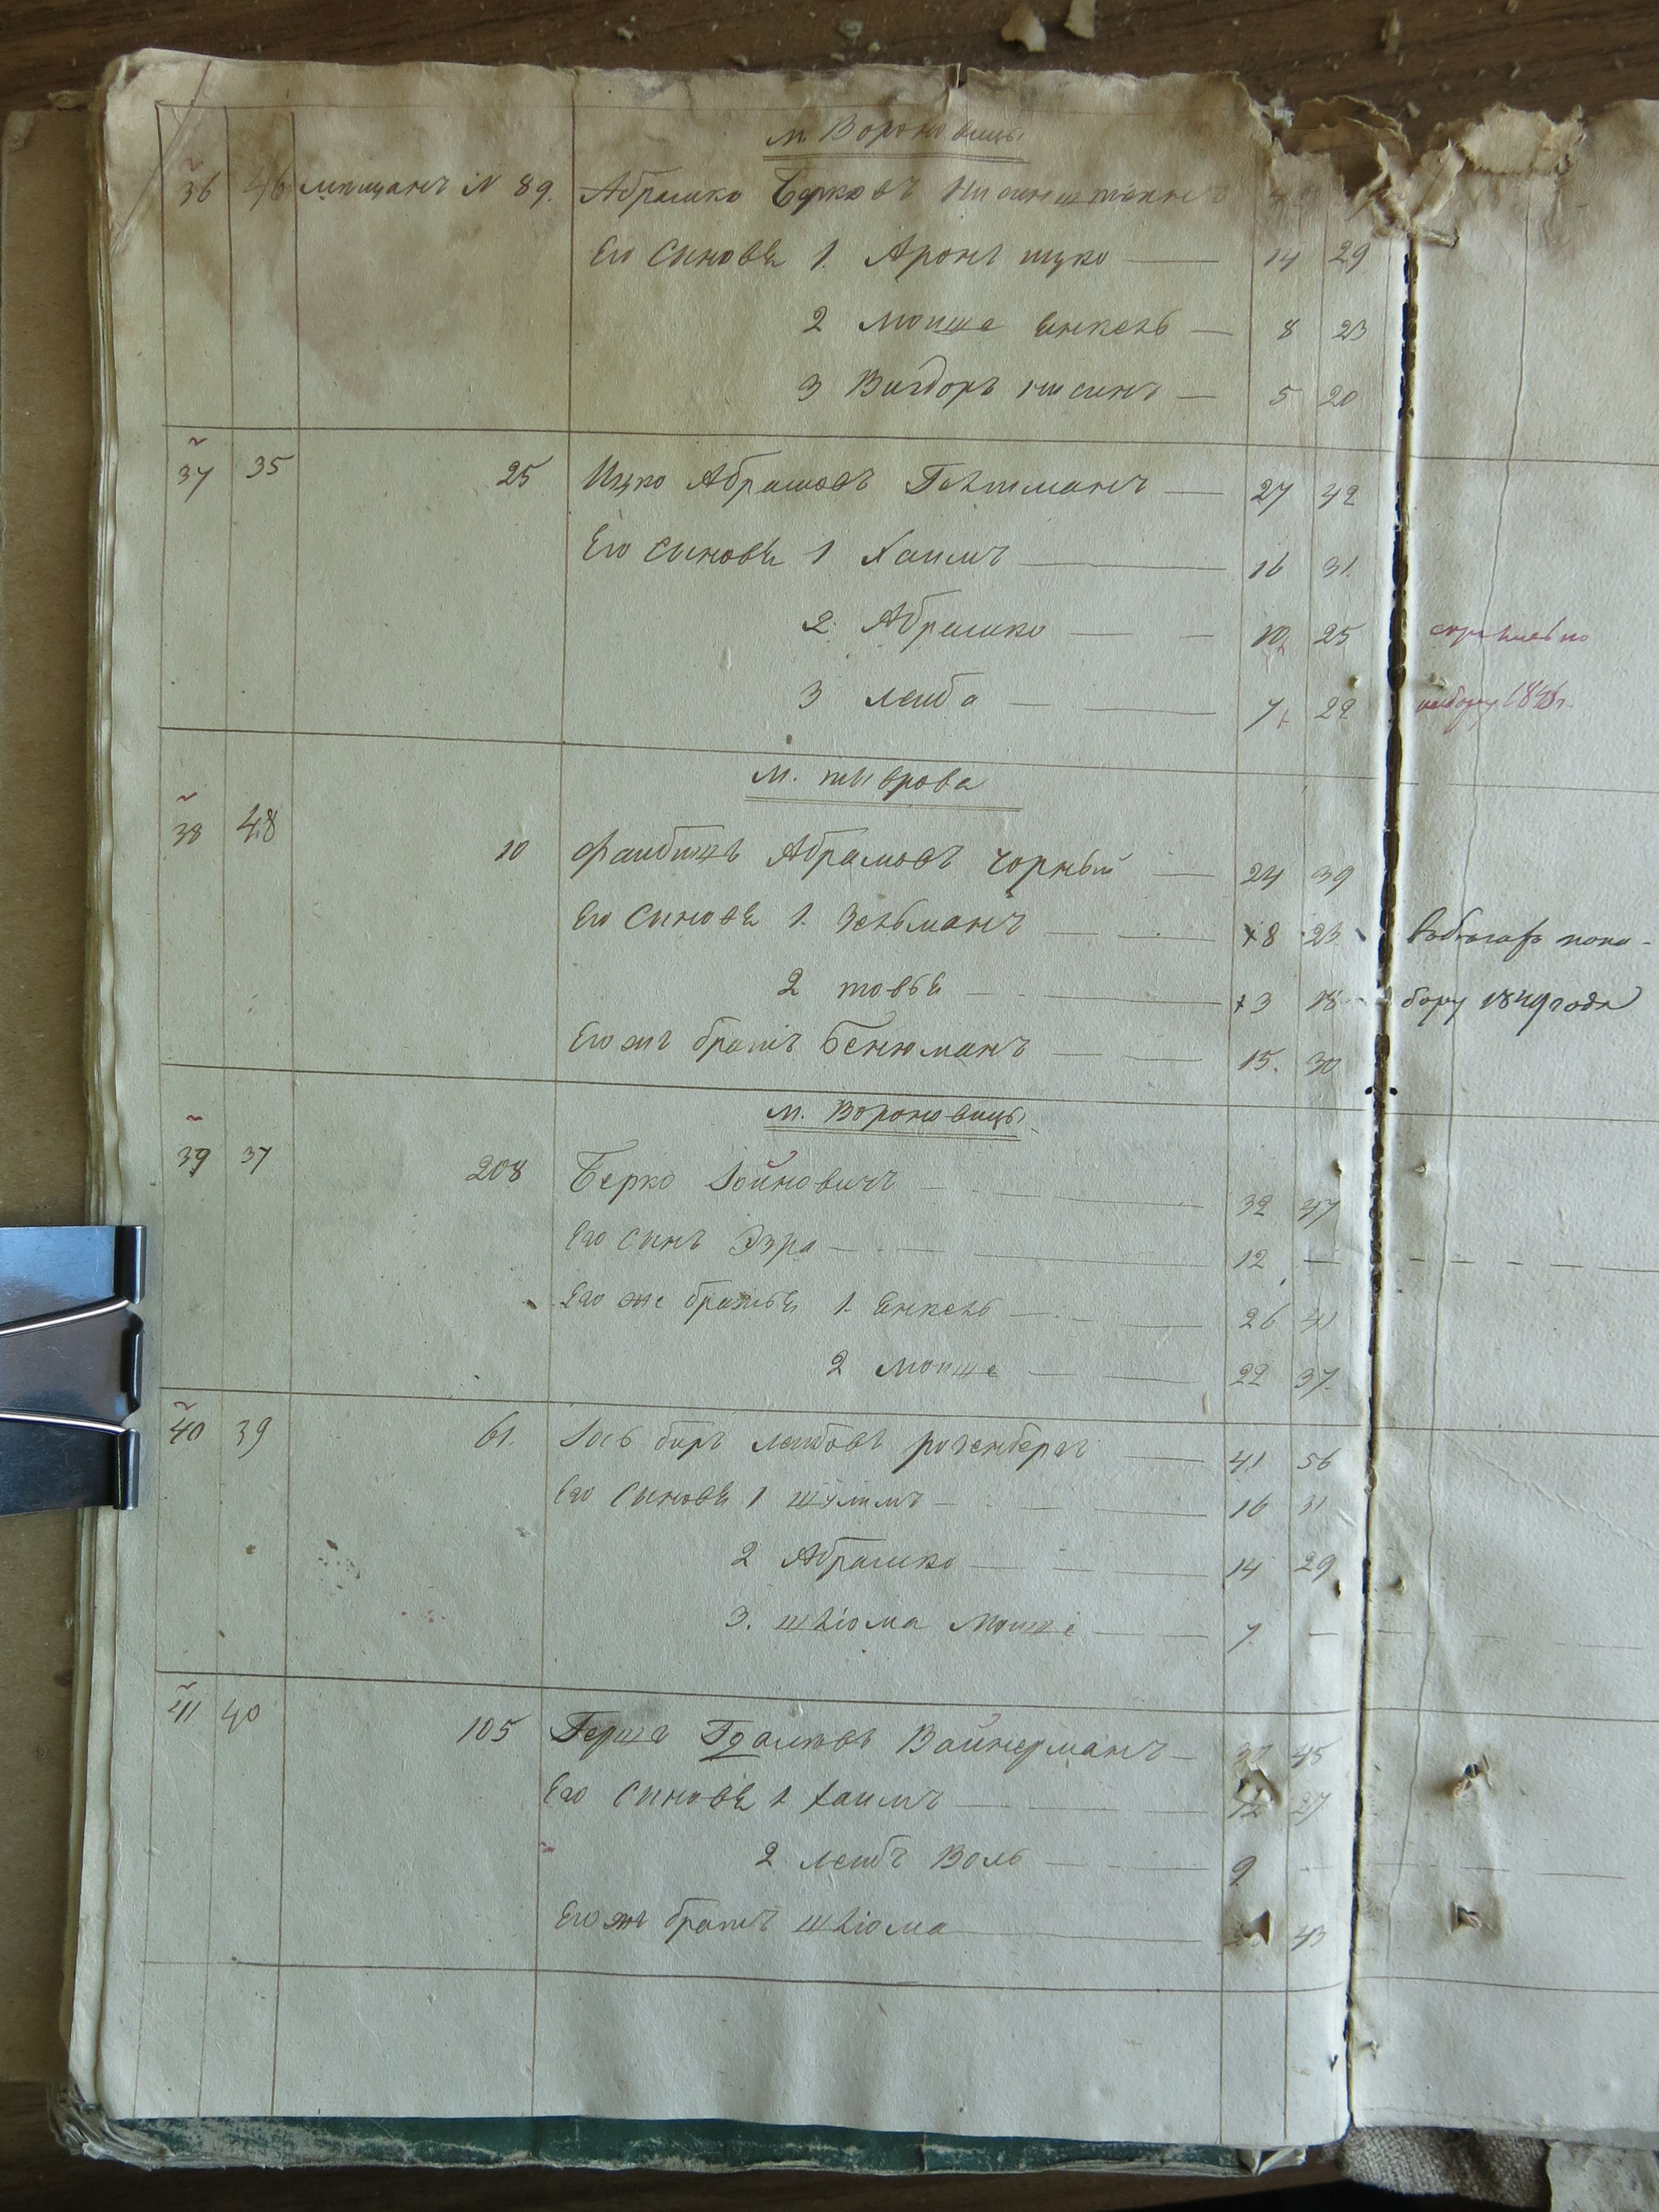 м. Вороновицы
36 46 мещанъ N 89. Абрашко Берковъ
Его Сыновья 1. Аронъ ицко 14 29
2 мошке Янкель 8 23
3 Вигдоръ нисинъ 5 20
37 35 25 Ицко Абрамовъ Гехтманъ 27 42
Его Сыновья 1 Хаимъ 16 31
2. Абрашко 10 25
3 леиба 7 22
м. тыврова
38 48 10 Фаибишъ Абрамовъ Чорный 24 39
Его Сыновья 1. Зельманъ 8 23
2 товья 3 18 бору 1849 года
Его же братъ Бенюманъ 15. 30
м. Вороновицы
39 37 208 Берко Іойновичъ 32 47
Его Сынъ Эзра 12 —
Его же братья 1. Янкель 26 41
2 мошке 22 37
40 39 61. Іось биръ леибовъ розенбергъ 41 56
Его Сыновья 1 шулимъ 16 31
2 Абрашко 14 29
3. шліома Мошке 7 —
41 40 105 Гершъ Вайнерманъ 45
Его Сыновья 1 Хаимъ 12 27
2 леибъ Воль 9 —
Его же братъ шліома 43